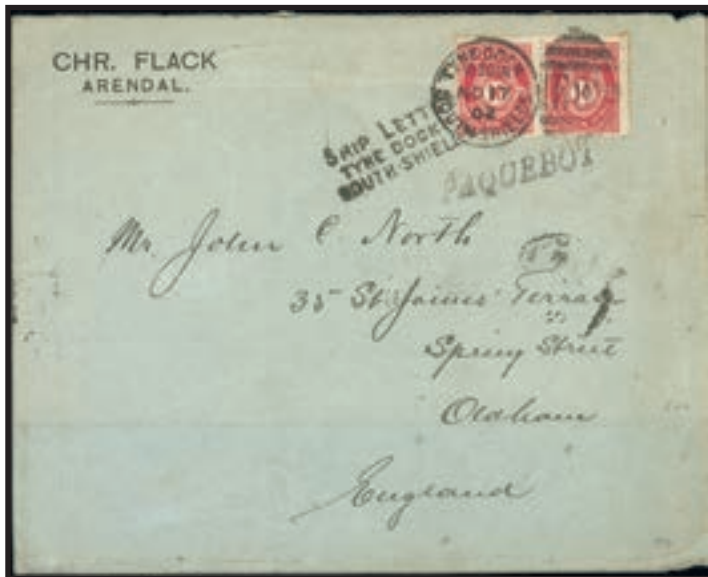 CHR. FLACK
ARENDAL.
TYNE DOCK
NO 17
02
SOUTH SHIELDS
10
SHIP LETT
TYNE DOCK
SOUTH-SHIEL
PAQUEBOT
Mr. John C. North
35 St James' Terrace
Spring Street
Oldham
England